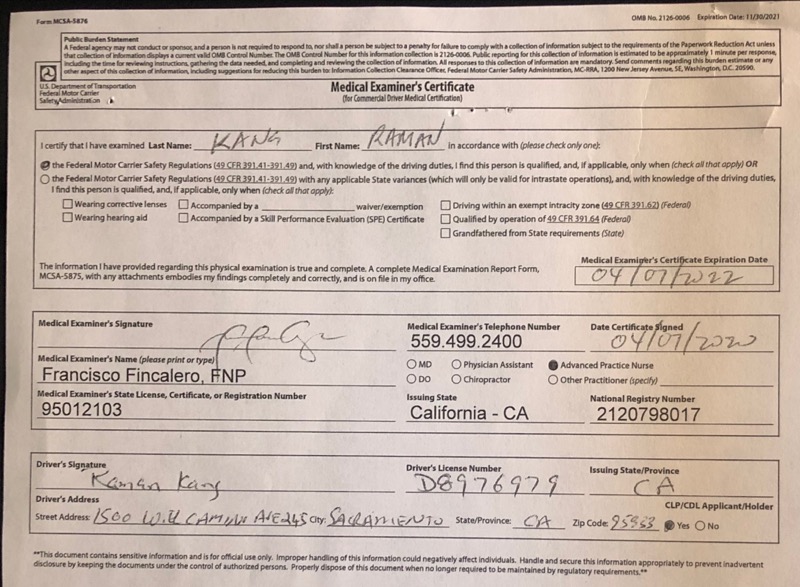 Form MCSA-5876
OMB No. 2126-0006 Expiration Date: 11/30/2021
Public Burden Statement
A Federal agency may not conduct or sponsor, and a person is not required to respond to, nor shall a person be subject to a penalty for failure to comply with a collection of information subject to the requirements of the Paperwork Reduction Act unless
that collection of information displays a current valid OMB Control Number. The OMB Control Number for this information collection is 2126-0006. Public reporting for this collection of information is estimated to be approximately 1 minute per response,
including the time for reviewing instructions, gathering the data needed, and completing and reviewing the collection of information. All responses to this collection of information are mandatory. Send comments regarding this burden estimate or any
other aspect of this collection of information, including suggestions for reducing this burden to: Information Collection Clearance Officer, Federal Motor Carrier Safety Administration, MC-RRA, 1200 New Jersey Avenue, SE, Washington, D.C. 20590.
U.S. Department of Transportation
Federal Motor Carrier
Safety Administration
Medical Examiner's Certificate
(for Commercial Driver Medical Certification)
I certify that I have examined Last Name: KANG First Name: RAMAN in accordance with (please check only one):
the Federal Motor Carrier Safety Regulations (49 CFR 391.41-391.49) and, with knowledge of the driving duties, I find this person is qualified, and, if applicable, only when (check all that apply) OR
the Federal Motor Carrier Safety Regulations (49 CFR 391.41-391.49) with any applicable State variances (which will only be valid for intrastate operations), and, with knowledge of the driving duties,
I find this person is qualified, and, if applicable, only when (check all that apply):
Wearing corrective lenses Accompanied by a waiver/exemption Driving within an exempt intracity zone (49 CFR 391.62) (Federal)
Wearing hearing aid Accompanied by a Skill Performance Evaluation (SPE) Certificate Qualified by operation of 49 CFR 391.64 (Federal)
Grandfathered from State requirements (State)
The information I have provided regarding this physical examination is true and complete. A complete Medical Examination Report Form,
MCSA-5875, with any attachments embodies my findings completely and correctly, and is on file in my office.
Medical Examiner's Certificate Expiration Date
04/07/2022
Medical Examiner's Signature
Medical Examiner's Telephone Number
559.499.2400
Date Certificate Signed
04/07/2020
Medical Examiner's Name (please print or type)
Francisco Fincalero, FNP
MD Physician Assistant Advanced Practice Nurse
DO Chiropractor Other Practitioner (specify)
Medical Examiner's State License, Certificate, or Registration Number
95012103
Issuing State
California - CA
National Registry Number
2120798017
Driver's Signature
Raman Kang
Driver's License Number
D8976979
Issuing State/Province
CA
Driver's Address
CLP/CDL Applicant/Holder
Street Address: 1500 AVE 245 City: SACRAMENTO State/Province: CA Zip Code: Yes No
**This document contains sensitive information and is for official use only. Improper handling of this information could negatively affect individuals. Handle and secure this information appropriately to prevent inadvertent
disclosure by keeping the documents under the control of authorized persons. Properly dispose of this document when no longer required to be maintained by regulatory requirements.**